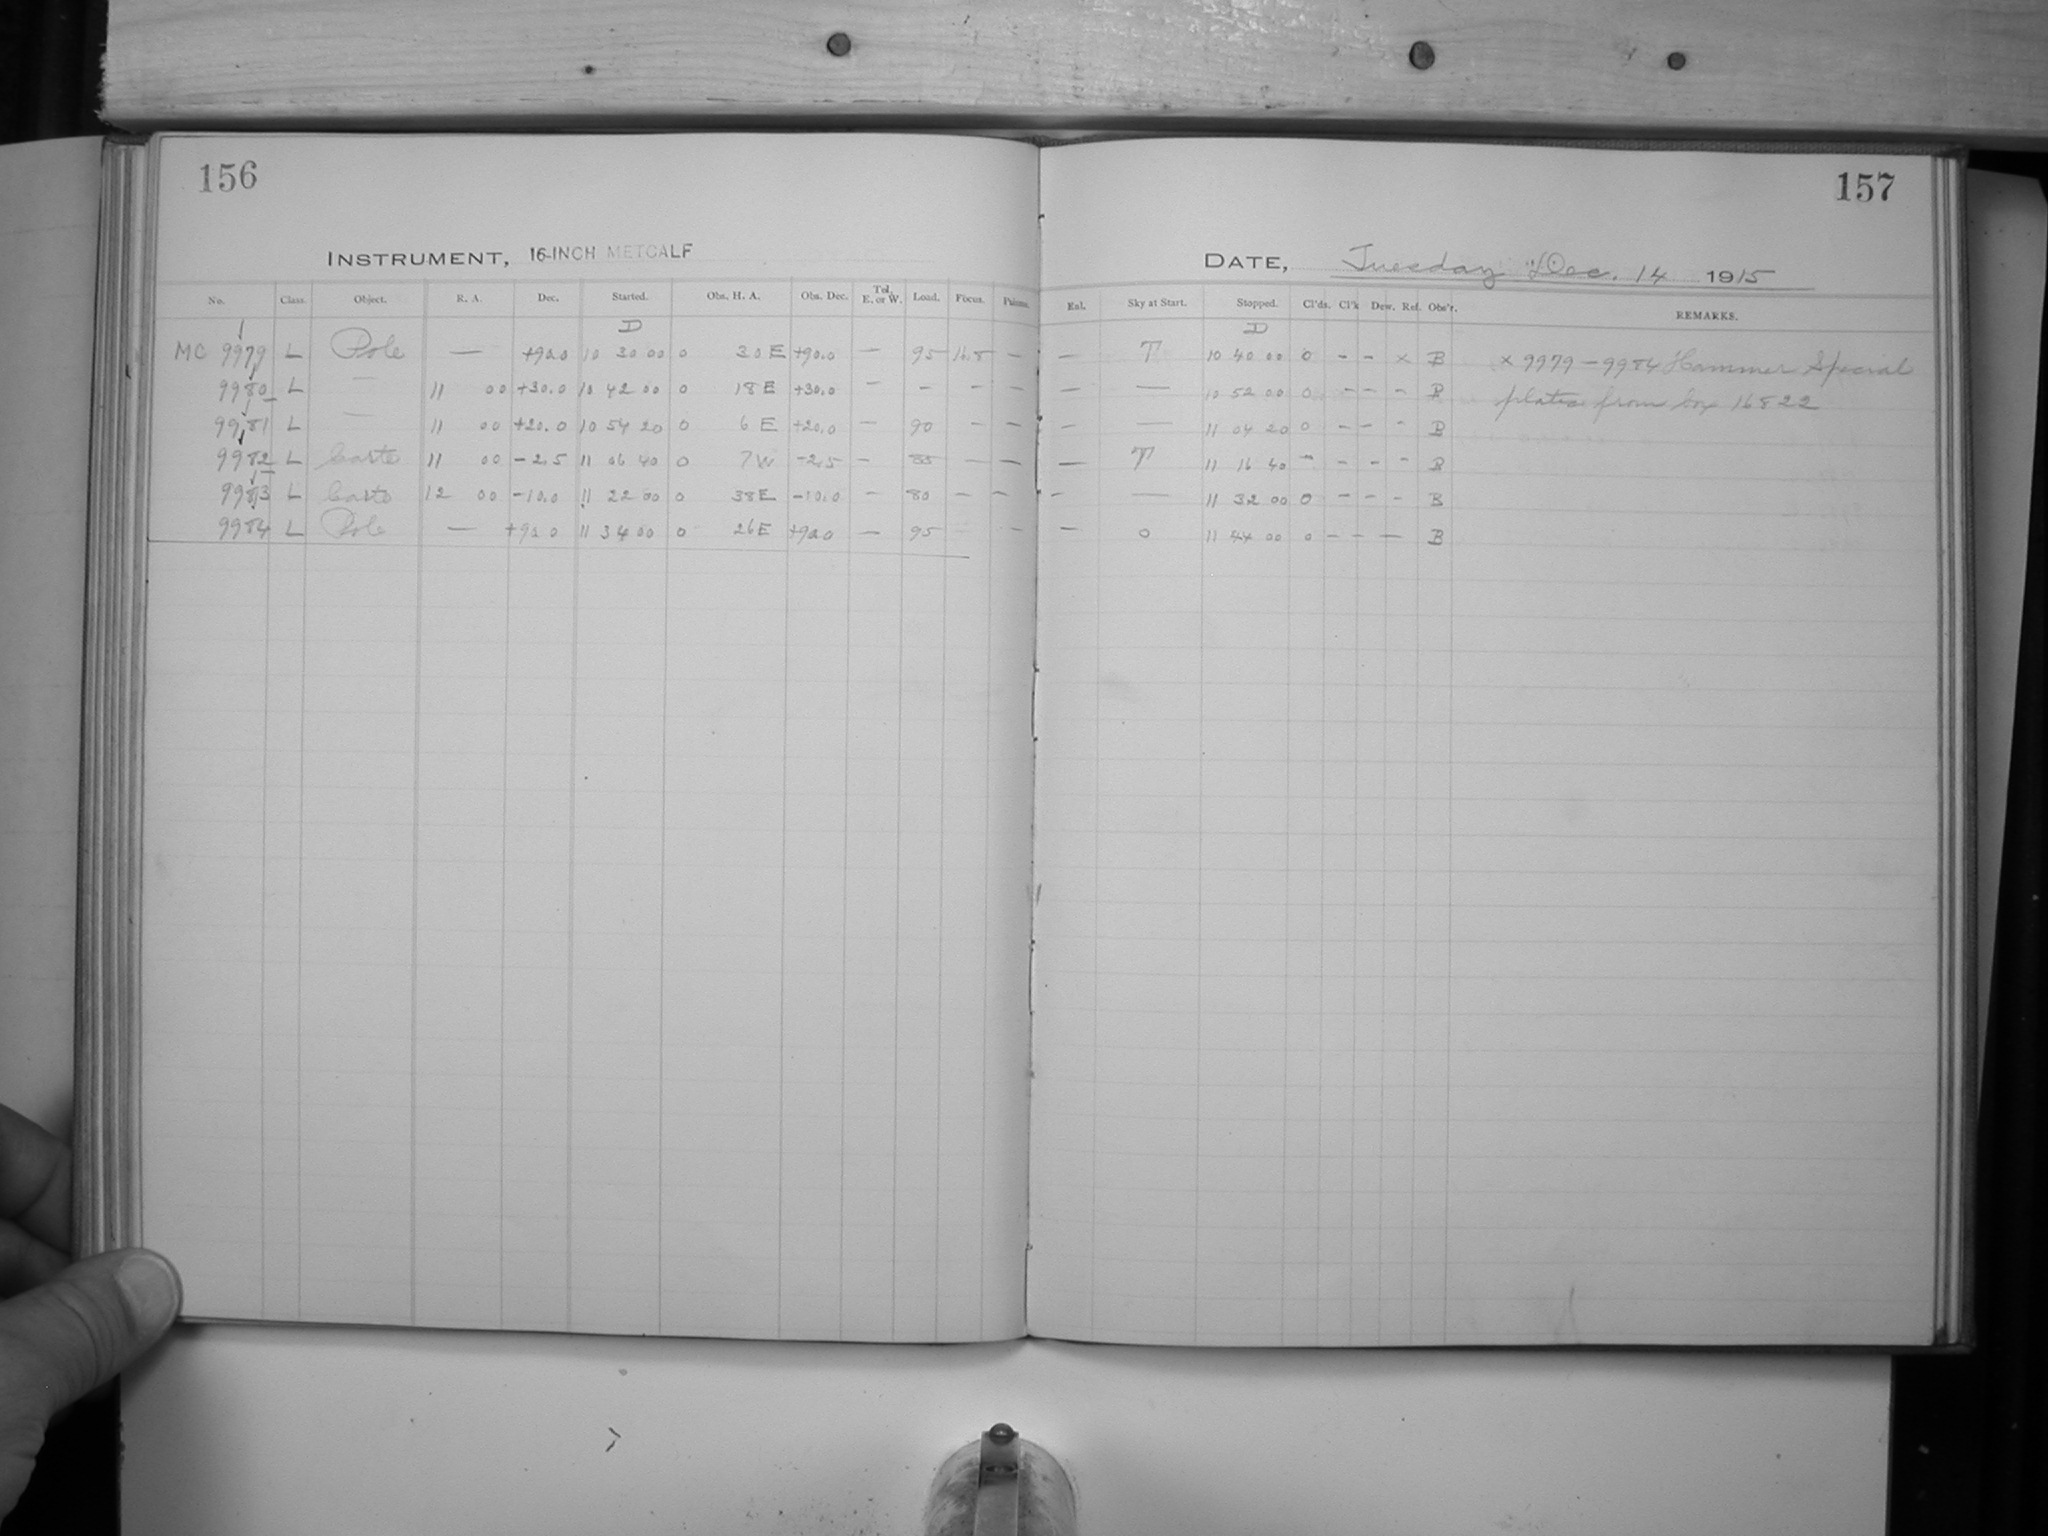 156
157
INSTRUMENT, 16-INCH METCALF
DATE, Tuesday Dec. 14 1915
No. Class. Object. R. A. Dec. Started. Obs. H. A. Obs. Dec. Tel. E. or W. Load. Focus. Enl. Sky at Start. Stopped. Cl'ds. Cl'k Dew. Ref. Obs'r. REMARKS.
D D
MC 9979 L Pole — +90.0 10 30 00 0 30 E +90.0 — 95 16.8 — — T 10 40 00 0 - - × B × 9979 — 9984 Hammer Special
9980 L — 11 00 +30.0 10 42 00 0 18 E +30.0 — - - - — — 10 52 00 0 - - - B plates from box 16822
9981 L — 11 00 +20.0 10 54 20 0 6 E +20.0 — 90 - - — — 11 04 20 0 - - - B
9982 L Carte 11 00 -2.5 11 06 40 0 7 W -2.5 — 85 — — — T 11 16 40 - - - - B
9983 L Carte 12 00 -10.0 11 22 00 0 38 E -10.0 — 80 — — — — 11 32 00 0 - - - B
9984 L Pole — +90.0 11 34 00 0 26 E +90.0 — 95 — — 0 11 44 00 0 - - — B